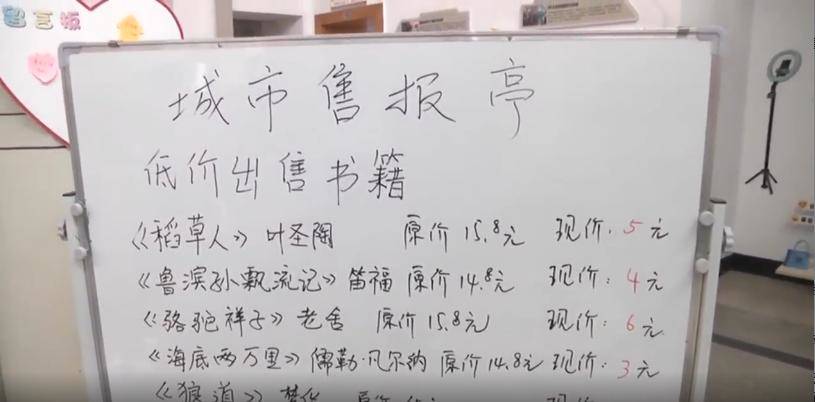 留言板
城市售报亭
低价出售书籍
《稻草人》 叶圣陶 原价 15.8元 现价: 5元
《鲁滨孙飘流记》 笛福 原价 14.8元 现价: 4元
《骆驼祥子》 老舍 原价 15.8元 现价: 6元
《海底两万里》 儒勒·凡尔纳 原价 14.8元 现价: 3元
《狼道》